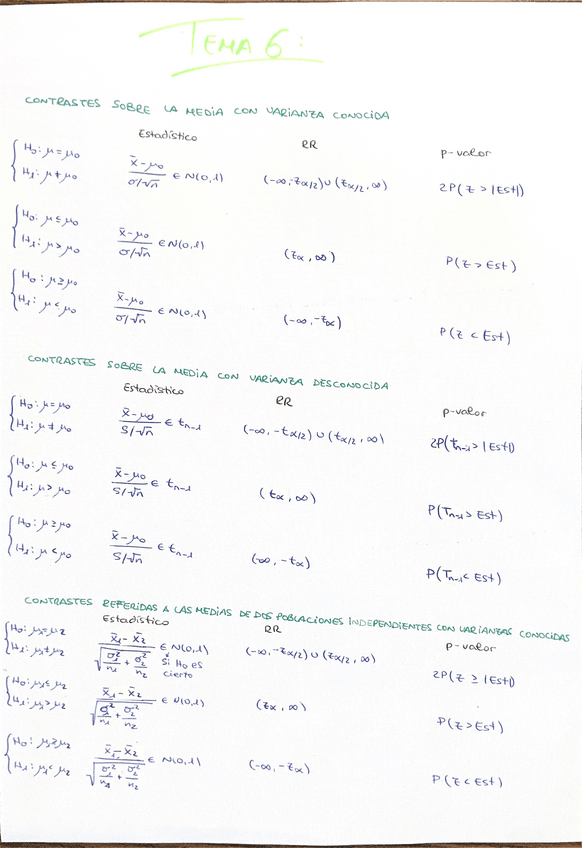 TEMA 6:
CONTRASTES SOBRE LA MEDIA CON VARIANZA CONOCIDA
Estadístico RR p-valor
H₀: μ = μ₀
H₁: μ ≠ μ₀ x̄-μ₀ / σ/√n ∈ N(0,1) (-∞,-z_α/2) ∪ (z_α/2, ∞) 2P(Z > |Est|)
H₀: μ ≤ μ₀
H₁: μ > μ₀ x̄-μ₀ / σ/√n ∈ N(0,1) (z_α, ∞) P(Z > Est)
H₀: μ ≥ μ₀
H₁: μ < μ₀ x̄-μ₀ / σ/√n ∈ N(0,1) (-∞, -z_α) P(Z < Est)
CONTRASTES SOBRE LA MEDIA CON VARIANZA DESCONOCIDA
Estadístico RR p-valor
H₀: μ = μ₀
H₁: μ ≠ μ₀ x̄-μ₀ / S/√n ∈ t_n-1 (-∞, -t_α/2) ∪ (t_α/2, ∞) 2P(t_n-1 > |Est|)
H₀: μ ≤ μ₀
H₁: μ > μ₀ x̄-μ₀ / S/√n ∈ t_n-1 (t_α, ∞) P(T_n-1 > Est)
H₀: μ ≥ μ₀
H₁: μ < μ₀ x̄-μ₀ / S/√n ∈ t_n-1 (-∞, -t_α) P(T_n-1 < Est)
CONTRASTES REFERIDAS A LAS MEDIAS DE DOS POBLACIONES INDEPENDIENTES CON VARIANZAS CONOCIDAS
Estadístico RR p-valor
H₀: μ₁ = μ₂
H₁: μ₁ ≠ μ₂ x̄₁ - x̄₂ / √(σ₁²/n₁ + σ₂²/n₂) ∈ N(0,1) (-∞, -z_α/2) ∪ (z_α/2, ∞) 2P(Z ≥ |Est|)
si H₀ es
cierto
H₀: μ₁ ≤ μ₂
H₁: μ₁ > μ₂ x̄₁ - x̄₂ / √(σ₁²/n₁ + σ₂²/n₂) ∈ N(0,1) (z_α, ∞) P(Z > Est)
H₀: μ₁ ≥ μ₂
H₁: μ₁ < μ₂ x̄₁ - x̄₂ / √(σ₁²/n₁ + σ₂²/n₂) ∈ N(0,1) (-∞, -z_α) P(Z < Est)